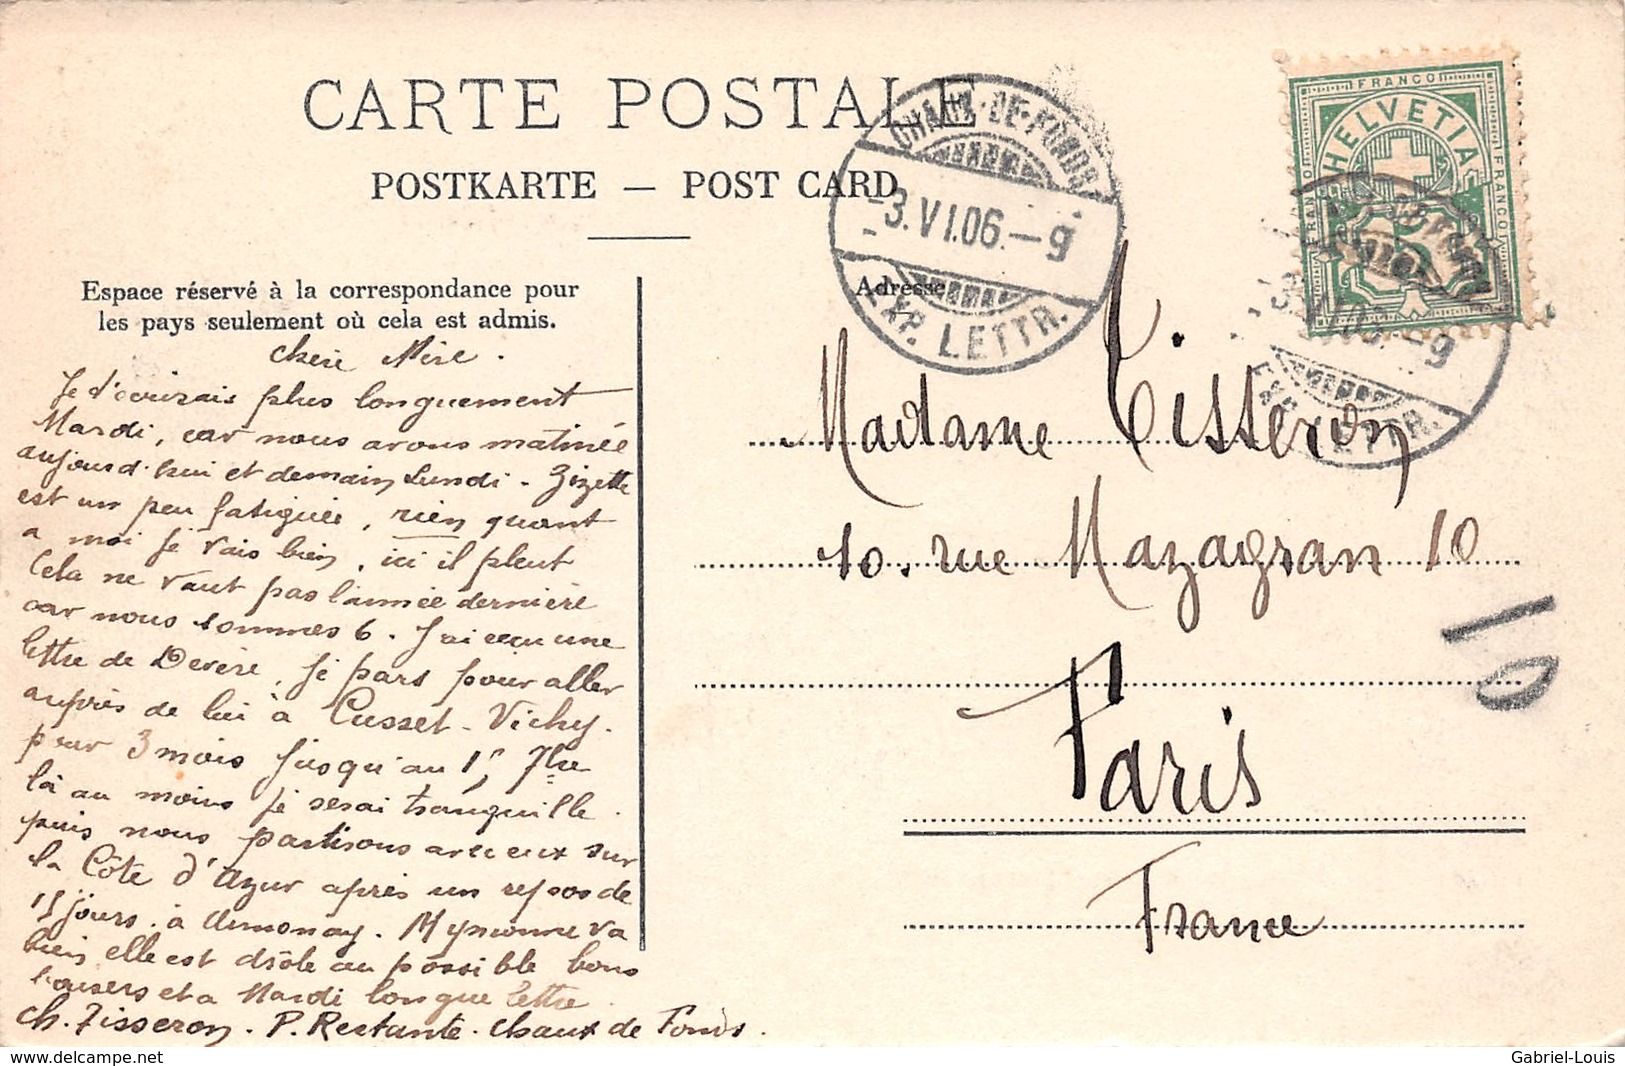 CARTE POSTALE
POSTKARTE — POST CARD
CHAUX-DE-FONDS
-3.VI.06.-9
EXP. LETTR.
FRANCO
HELVETIA
FRANCO
FRANCO
5
-9
LETTR.
Espace réservé à la correspondance pour
les pays seulement où cela est admis.
Adresse
chère Mère.
Je t'écrirais plus longuement
Mardi, car nous avons matinée
aujourd'hui et demain Lundi - Zizette
est un peu fatiguée, rien quant
a moi je vais bien, ici il pleut
Cela ne vaut pas l'année dernière
car nous sommes 6. J'ai reçu une
lettre de Devère, je pars pour aller
auprès de lui à Cusset-Vichy.
pour 3 mois jusqu'au 15 7bre
là au moins je serai tranquille.
puis nous partirons avec eux sur
la Côte d'Azur après un repos de
15 jours. à Annonay. va
bien elle est drôle au possible bons
baisers et a Mardi longue lettre
Ch. Tisseron. P. Restante. Chaux de Fonds.
Madame Tisseron
10. rue Mazagran 10
Paris
France
10
Gabriel-Louis